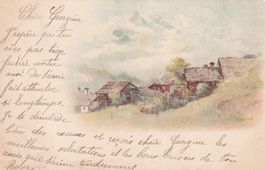 Chère Georgine
J'espère qu tu
n'es pas trop
fachée contre
moi de t'avoir
fait attendre
si longtemps.
Je te demande
bien des excuses et reçois chère Georgine les
meilleures salutations et les bons baisers de ton
amie qui t'aime tendrement